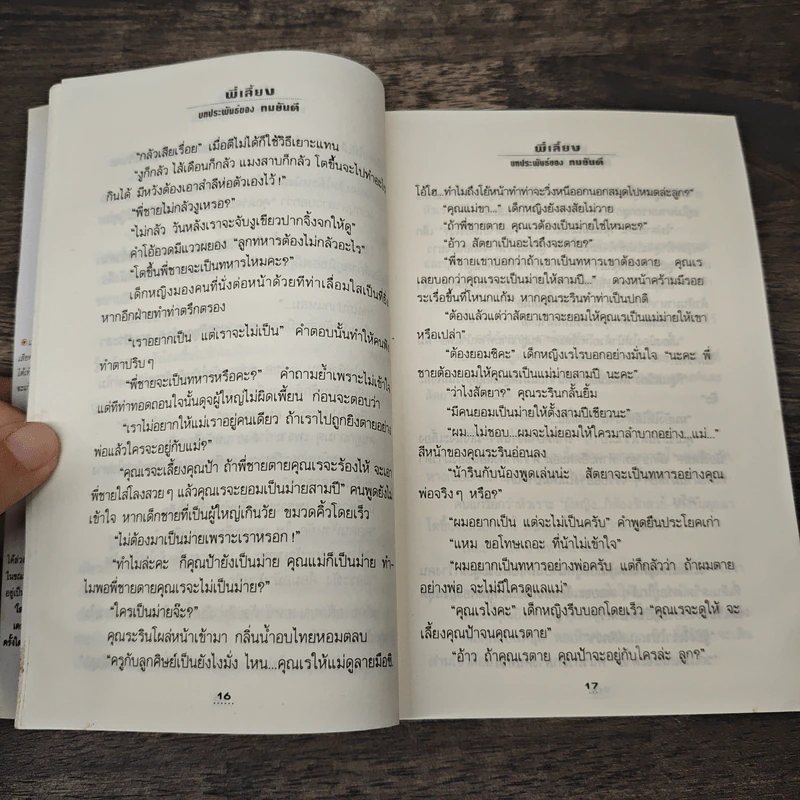 พี่เลี้ยง
บทประพันธ์ของ ทมยันตี
“กลัวเสียเรื่อย” เมื่อตีไม่ได้ก็ใช้วิธีเยาะแทน
“งูก็กลัว ไส้เดือนก็กลัว แมงสาบก็กลัว โตขึ้นจะไปทำอะไร
กินได้ มีหวังต้องเอาสำลีห่อตัวเองไว้ !”
“พี่ชายไม่กลัวงูเหรอ?”
“ไม่กลัว วันหลังเราจะจับงูเขียวปากจิ้งจกให้ดู”
คำโอ้อวดมีแววผยอง “ลูกทหารต้องไม่กลัวอะไร”
“โตขึ้นพี่ชายจะเป็นทหารไหมคะ?”
เด็กหญิงมองคนที่นั่งต่อหน้าด้วยทีท่าเลื่อมใสเป็นที่ยิ่ง
หากอีกฝ่ายทำท่าตรึกตรอง
“เราอยากเป็น แต่เราจะไม่เป็น” คำตอบนั้นทำให้คนฟัง
ทำตาปริบ ๆ
“พี่ชายจะเป็นทหารหรือคะ?” คำถามย้ำเพราะไม่เข้าใจ
แต่ทีท่าทอดถอนใจนั้นดุจผู้ใหญ่ไม่ผิดเพี้ยน ก่อนจะตอบว่า
“เราไม่อยากให้แม่เราอยู่คนเดียว ถ้าเราไปถูกยิงตายอย่าง
พ่อแล้วใครจะอยู่กับแม่?”
“คุณเรจะเลี้ยงคุณป้า ถ้าพี่ชายตายคุณเรจะร้องไห้ จะเอา
พี่ชายใส่โลงสวย ๆ แล้วคุณเรจะยอมเป็นม่ายสามปี” คนพูดยังไม่
เข้าใจ หากเด็กชายที่เป็นผู้ใหญ่เกินวัย ขมวดคิ้วโดยเร็ว
“ไม่ต้องมาเป็นม่ายเพราะเราหรอก !”
“ทำไมล่ะคะ ก็คุณป้ายังเป็นม่าย คุณแม่ก็เป็นม่าย ทำ-
ไมพอพี่ชายตายคุณเรจะไม่เป็นม่าย?”
“ใครเป็นม่ายจ๊ะ?”
คุณระรินโผล่หน้าเข้ามา กลิ่นน้ำอบไทยหอมตลบ
“ครูกับลูกศิษย์เป็นยังไงมั่ง ไหน...คุณเรให้แม่ดูลายมือซิ
16
พี่เลี้ยง
บทประพันธ์ของ ทมยันตี
โอ้โฮ...ทำไมถึงโย้หน้าทำท่าจะวิ่งหนีออกนอกสมุดไปหมดล่ะลูก?”
“คุณแม่ขา...” เด็กหญิงยังสงสัยไม่วาย
“ถ้าพี่ชายตาย คุณเรต้องเป็นม่ายใช่ไหมคะ?”
“อ้าว สัตยาเป็นอะไรถึงจะตาย?”
“พี่ชายเขาบอกว่าถ้าเขาเป็นทหารเขาต้องตาย คุณเร
เลยบอกว่าคุณเรจะเป็นม่ายให้สามปี...” ดวงหน้าคร้ามมีรอย
ระเรื่อขึ้นที่โหนกแก้ม หากคุณระรินทำท่าเป็นปกติ
“ต้องแล้วแต่ว่าสัตยาเขาจะยอมให้คุณเรเป็นแม่ม่ายให้เขา
หรือเปล่า”
“ต้องยอมซิคะ” เด็กหญิงเรไรบอกอย่างมั่นใจ “นะคะ พี่
ชายต้องยอมให้คุณเรเป็นแม่ม่ายสามปี นะคะ”
“ว่าไงสัตยา?” คุณระรินกลั้นยิ้ม
“มีคนยอมเป็นม่ายให้ตั้งสามปีเชียวนะ”
“ผม...ไม่ชอบ...ผมจะไม่ยอมให้ใครมาลำบากอย่าง...แม่...”
สีหน้าของคุณระรินอ่อนลง
“น้ารินกับน้องพูดเล่นน่ะ สัตยาจะเป็นทหารอย่างคุณ
พ่อจริง ๆ หรือ?”
“ผมอยากเป็น แต่จะไม่เป็นครับ” คำพูดยืนประโยคเก่า
“แหม ขอโทษเถอะ ที่น้าไม่เข้าใจ”
“ผมอยากเป็นทหารอย่างพ่อครับ แต่ก็กลัวว่า ถ้าผมตาย
อย่างพ่อ จะไม่มีใครดูแลแม่”
“คุณเรไงคะ” เด็กหญิงรีบบอกโดยเร็ว “คุณเรจะดูให้ จะ
เลี้ยงคุณป้าจนคุณเรตาย”
“อ้าว ถ้าคุณเรตาย คุณป้าจะอยู่กับใครล่ะ ลูก?”
17